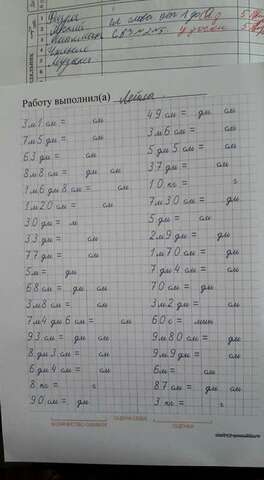 Работу выполнил(а)
3 м 1 см = см
7 м 5 дм = см
63 дм = см
8 м 8 см = дм см
1 м 6 дм 8 см = см
1 м 20 см = см
30 дм = м
33 дм = см
77 дм = см
5 м = дм
68 см = дм см
3 м 8 см = см
7 м 4 дм 6 см = см
93 см = дм см
8 дм 3 см = см
6 дм 4 см = см
8 кг = г
90 см = дм
49 см = дм см
3 м 6 см = см
5 дм 5 см = см
37 дм = см
10 кг = г
7 м 30 см = дм
5 дм = см
2 м 9 дм = дм
1 м 70 см = дм
7 дм 4 см = см
70 см = дм
3 м 2 дм = см
60 с = мин
9 м 80 см = дм
9 м 9 дм = см
6 м = см
87 см = дм см
3 кг = г
КОЛИЧЕСТВО ОШИБОК
ОЦЕНИ СЕБЯ
ОЦЕНКА